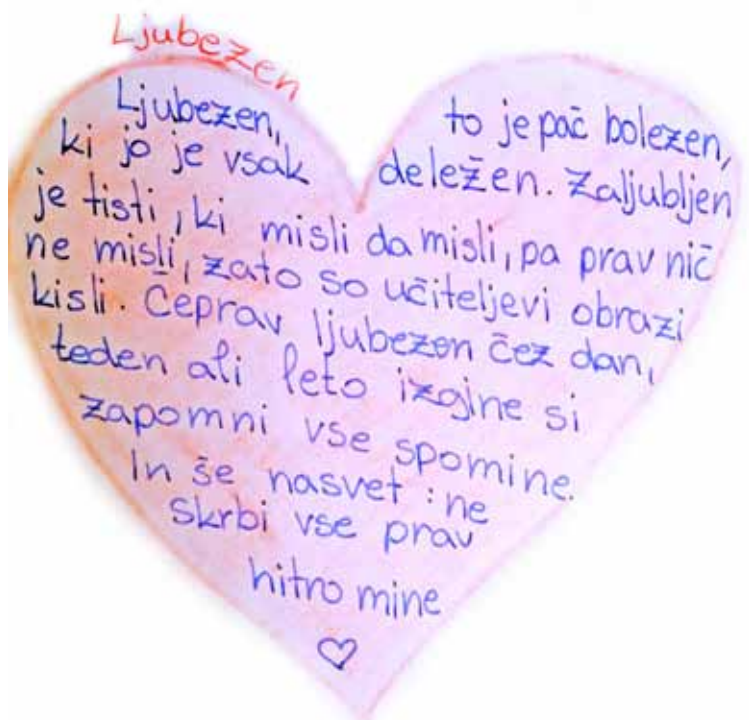 Ljubezen
Ljubezen, to je pač bolezen,
ki jo je vsak deležen. Zaljubljen
je tisti, ki misli da misli, pa prav nič
ne misli, zato so učiteljevi obrazi
kisli. Čeprav ljubezen čez dan,
teden ali leto izgine si
zapomni vse spomine.
In še nasvet: ne
skrbi vse prav
hitro mine
♡